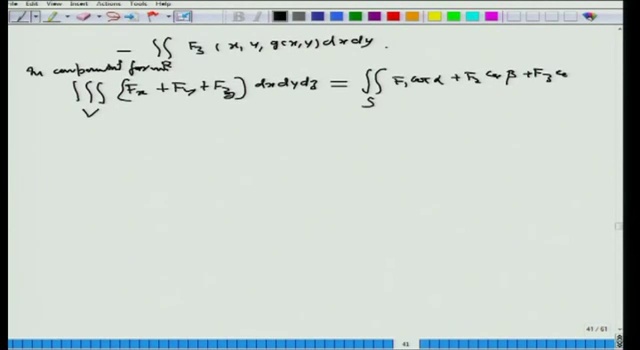 File Edit View Insert Actions Tools Help
− ∬_R F₃ (x, y, g(x,y) dx dy.
In component form
∭_V [Fx + Fy + Fz] dx dy dz = ∬_S F₁ cos α + F₂ cos β + F₃ co
41 / 61
41